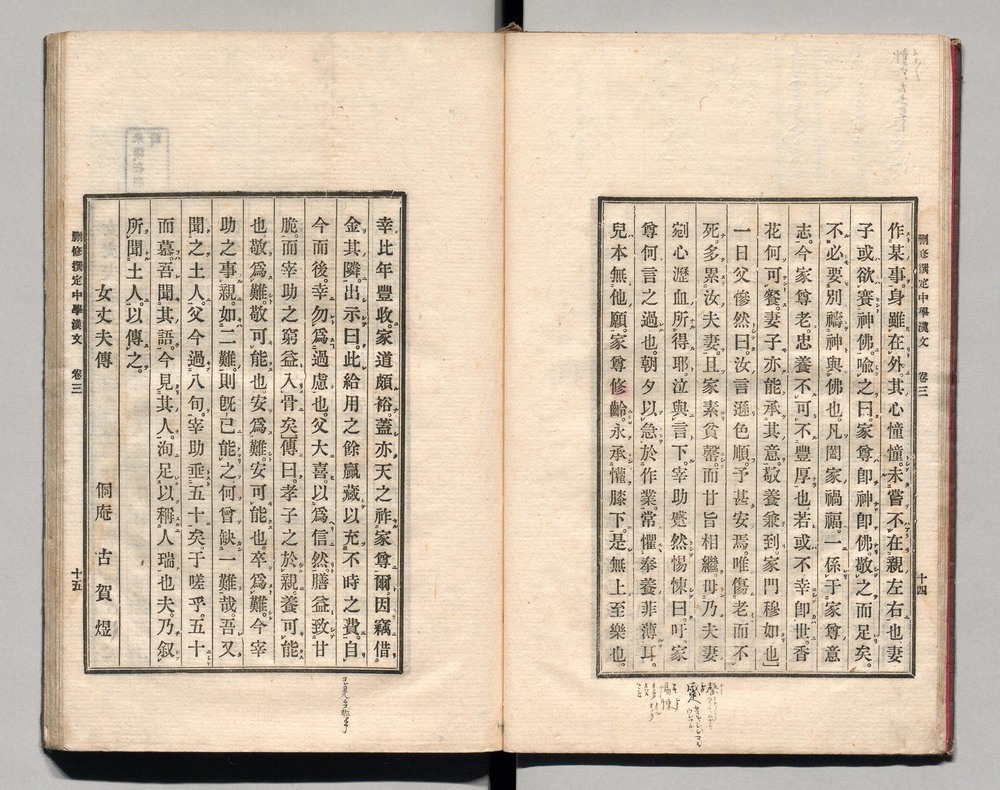 刪修撰定中學漢文 卷三 十四
作某事。身雖在外。其心憧憧未嘗不在親左右也。妻
子或欲賽神佛。喩之曰。家尊卽神卽佛。敬之而足矣。
不必要別禱神與佛也。凡闔家禍福。一係于家尊意
志。今家尊老。忠養不可不豐厚也。若或不幸卽世。香
花何可餐。妻子亦能承其意。敬養兼到。家門穆如也。
一日父慘然曰。汝言遜色順。予甚安焉。唯傷老而不
死。多累汝夫妻。且家素貧罄。而甘旨相繼。毋乃夫妻
剜心瀝血所得耶。泣與言下。宰助蹙然惕悚曰。吁家
尊何言之過也。朝夕以急於作業。常懼奉養菲薄耳。
兒本無他願。家尊修齡。永承懽膝下。是無上至樂也。
幸比年豐收。家道頗裕。蓋亦天之祚家尊爾。因竊借
金其隣。出示曰。此給用之餘贏。藏以充不時之費。自
今而後。幸勿爲過慮也。父大喜。以爲信然。膳益致甘
脆。而宰助之窮益入骨矣。傳曰。孝子之於親。養可能
也。敬爲難。敬可能也。安爲難。安可能也。卒爲難。今宰
助之事親。如二難。則旣已能之。何曾缺一難哉。吾又
聞之土人。父今過八旬。宰助垂五十矣。于嗟乎。五十
而慕。吾聞其語。今見其人。洵足以稱人瑞也夫。乃叙
所聞土人。以傳之。
女丈夫傳 侗庵 古賀煜
刪修撰定中學漢文 卷三 十五